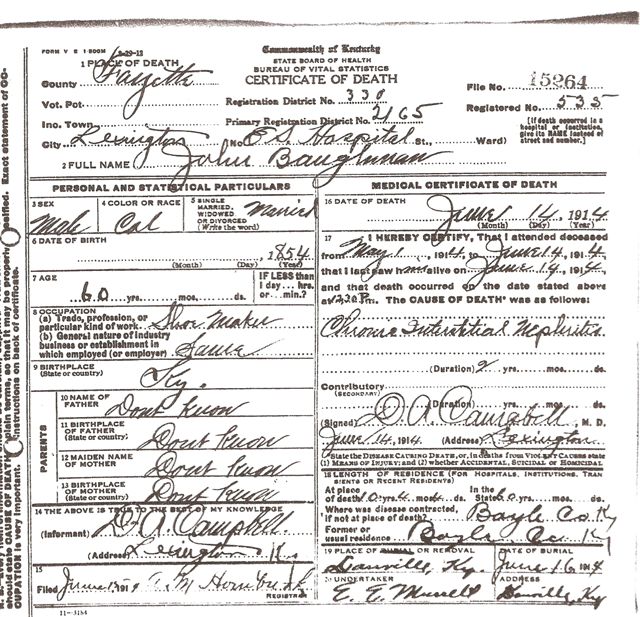 FORM V S 1 500M 2-29-12
1 PLACE OF DEATH
County Fayette
Vot. Pot.
Inc. Town
City Lexington No. E S. Hospital St., Ward)
2 FULL NAME John Baughman
Commonwealth of Kentucky
STATE BOARD OF HEALTH
BUREAU OF VITAL STATISTICS
CERTIFICATE OF DEATH
Registration District No. 330
Primary Registration District No. 2165
File No. 15264
Registered No. 535
[If death occurred in a
hospital or institution,
give its NAME instead of
street and number.]
PERSONAL AND STATISTICAL PARTICULARS
3 SEX
Male
4 COLOR OR RACE
Col
5 SINGLE,
MARRIED,
WIDOWED,
OR DIVORCED
(Write the word)
Married
6 DATE OF BIRTH
, 1854
(Month) (Day) (Year)
7 AGE
60 yrs. mos. ds.
IF LESS than
1 day... hrs.
or... min.?
8 OCCUPATION
(a) Trade, profession, or
particular kind of work Shoe Maker
(b) General nature of industry
business or establishment in
which employed (or employer) Same
9 BIRTHPLACE
(State or country)
Ky.
PARENTS
10 NAME OF
FATHER Dont Know
11 BIRTHPLACE
OF FATHER
(State or country) Dont Know
12 MAIDEN NAME
OF MOTHER Dont Know
13 BIRTHPLACE
OF MOTHER
(State or country) Dont Know
14 THE ABOVE IS TRUE TO THE BEST OF MY KNOWLEDGE
(Informant) D. A. Campbell
(Address) Lexington Ky.
15
Filed June 15, 191
REGISTRAR
11-3184
MEDICAL CERTIFICATE OF DEATH
16 DATE OF DEATH
June 14, 1914
(Month) (Day) (Year)
17 I HEREBY CERTIFY, That I attended deceased
from May 1, 1914, to June 14, 1914
that I last saw him alive on June 14, 1914
and that death occurred on the date stated above
at 1230 P.m. The CAUSE OF DEATH* was as follows:
Chronic Interstitial Nephritis
(Duration) 2 yrs. mos. ds.
Contributory
(SECONDARY)
(Duration) yrs. mos. ds.
(Signed) D. A. Campbell, M. D.
June 14, 1914 (Address) Lexington
*State the DISEASE CAUSING DEATH, or, in deaths from VIOLENT CAUSES state
(1) MEANS OF INJURY; and (2) whether ACCIDENTAL, SUICIDAL OR HOMICIDAL
18 LENGTH OF RESIDENCE (FOR HOSPITALS, INSTITUTIONS, TRAN
SIENTS OR RECENT RESIDENTS)
At place
of death 10 yrs. 4 mos. 4 ds.
In the
State 60 yrs. mos. ds.
Where was disease contracted,
if not at place of death? Boyle Co. Ky
Former or
usual residence Boyle Co. Ky
19 PLACE OF BURIAL OR REMOVAL
Danville, Ky.
DATE OF BURIAL
June 16, 1914
20 UNDERTAKER
E. E. Mussell
ADDRESS
Danville, Ky
should state CAUSE OF DEATH in plain terms, so that it may be properly classified. Exact statement of OC-
CUPATION is very important. instructions on back of certificate.